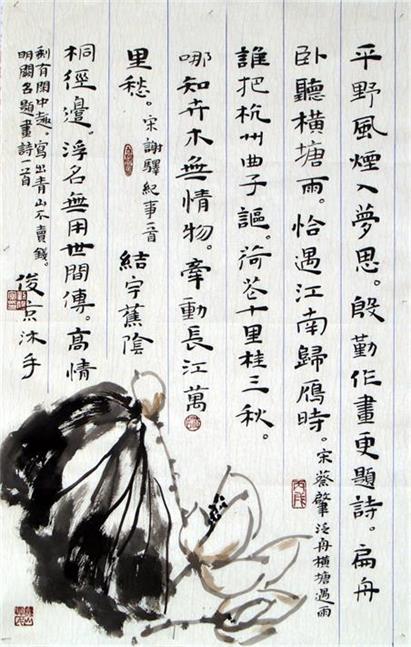 平野風煙入夢思。殷勤作畫更題詩。扁舟
卧聽橫塘雨。恰遇江南歸鴈時。宋蔡肇泛舟橫塘遇雨
誰把杭州曲子謳。荷芲十里桂三秋。
哪知卉木無情物。牽動長江萬
里愁。宋謝驛紀事一首 結宇蕉陰
桐徑邊。浮名無用世間傳。高情
剩有閑中趣、寫出青山不賣錢。
明闕名題畫詩一首 俊京沐手